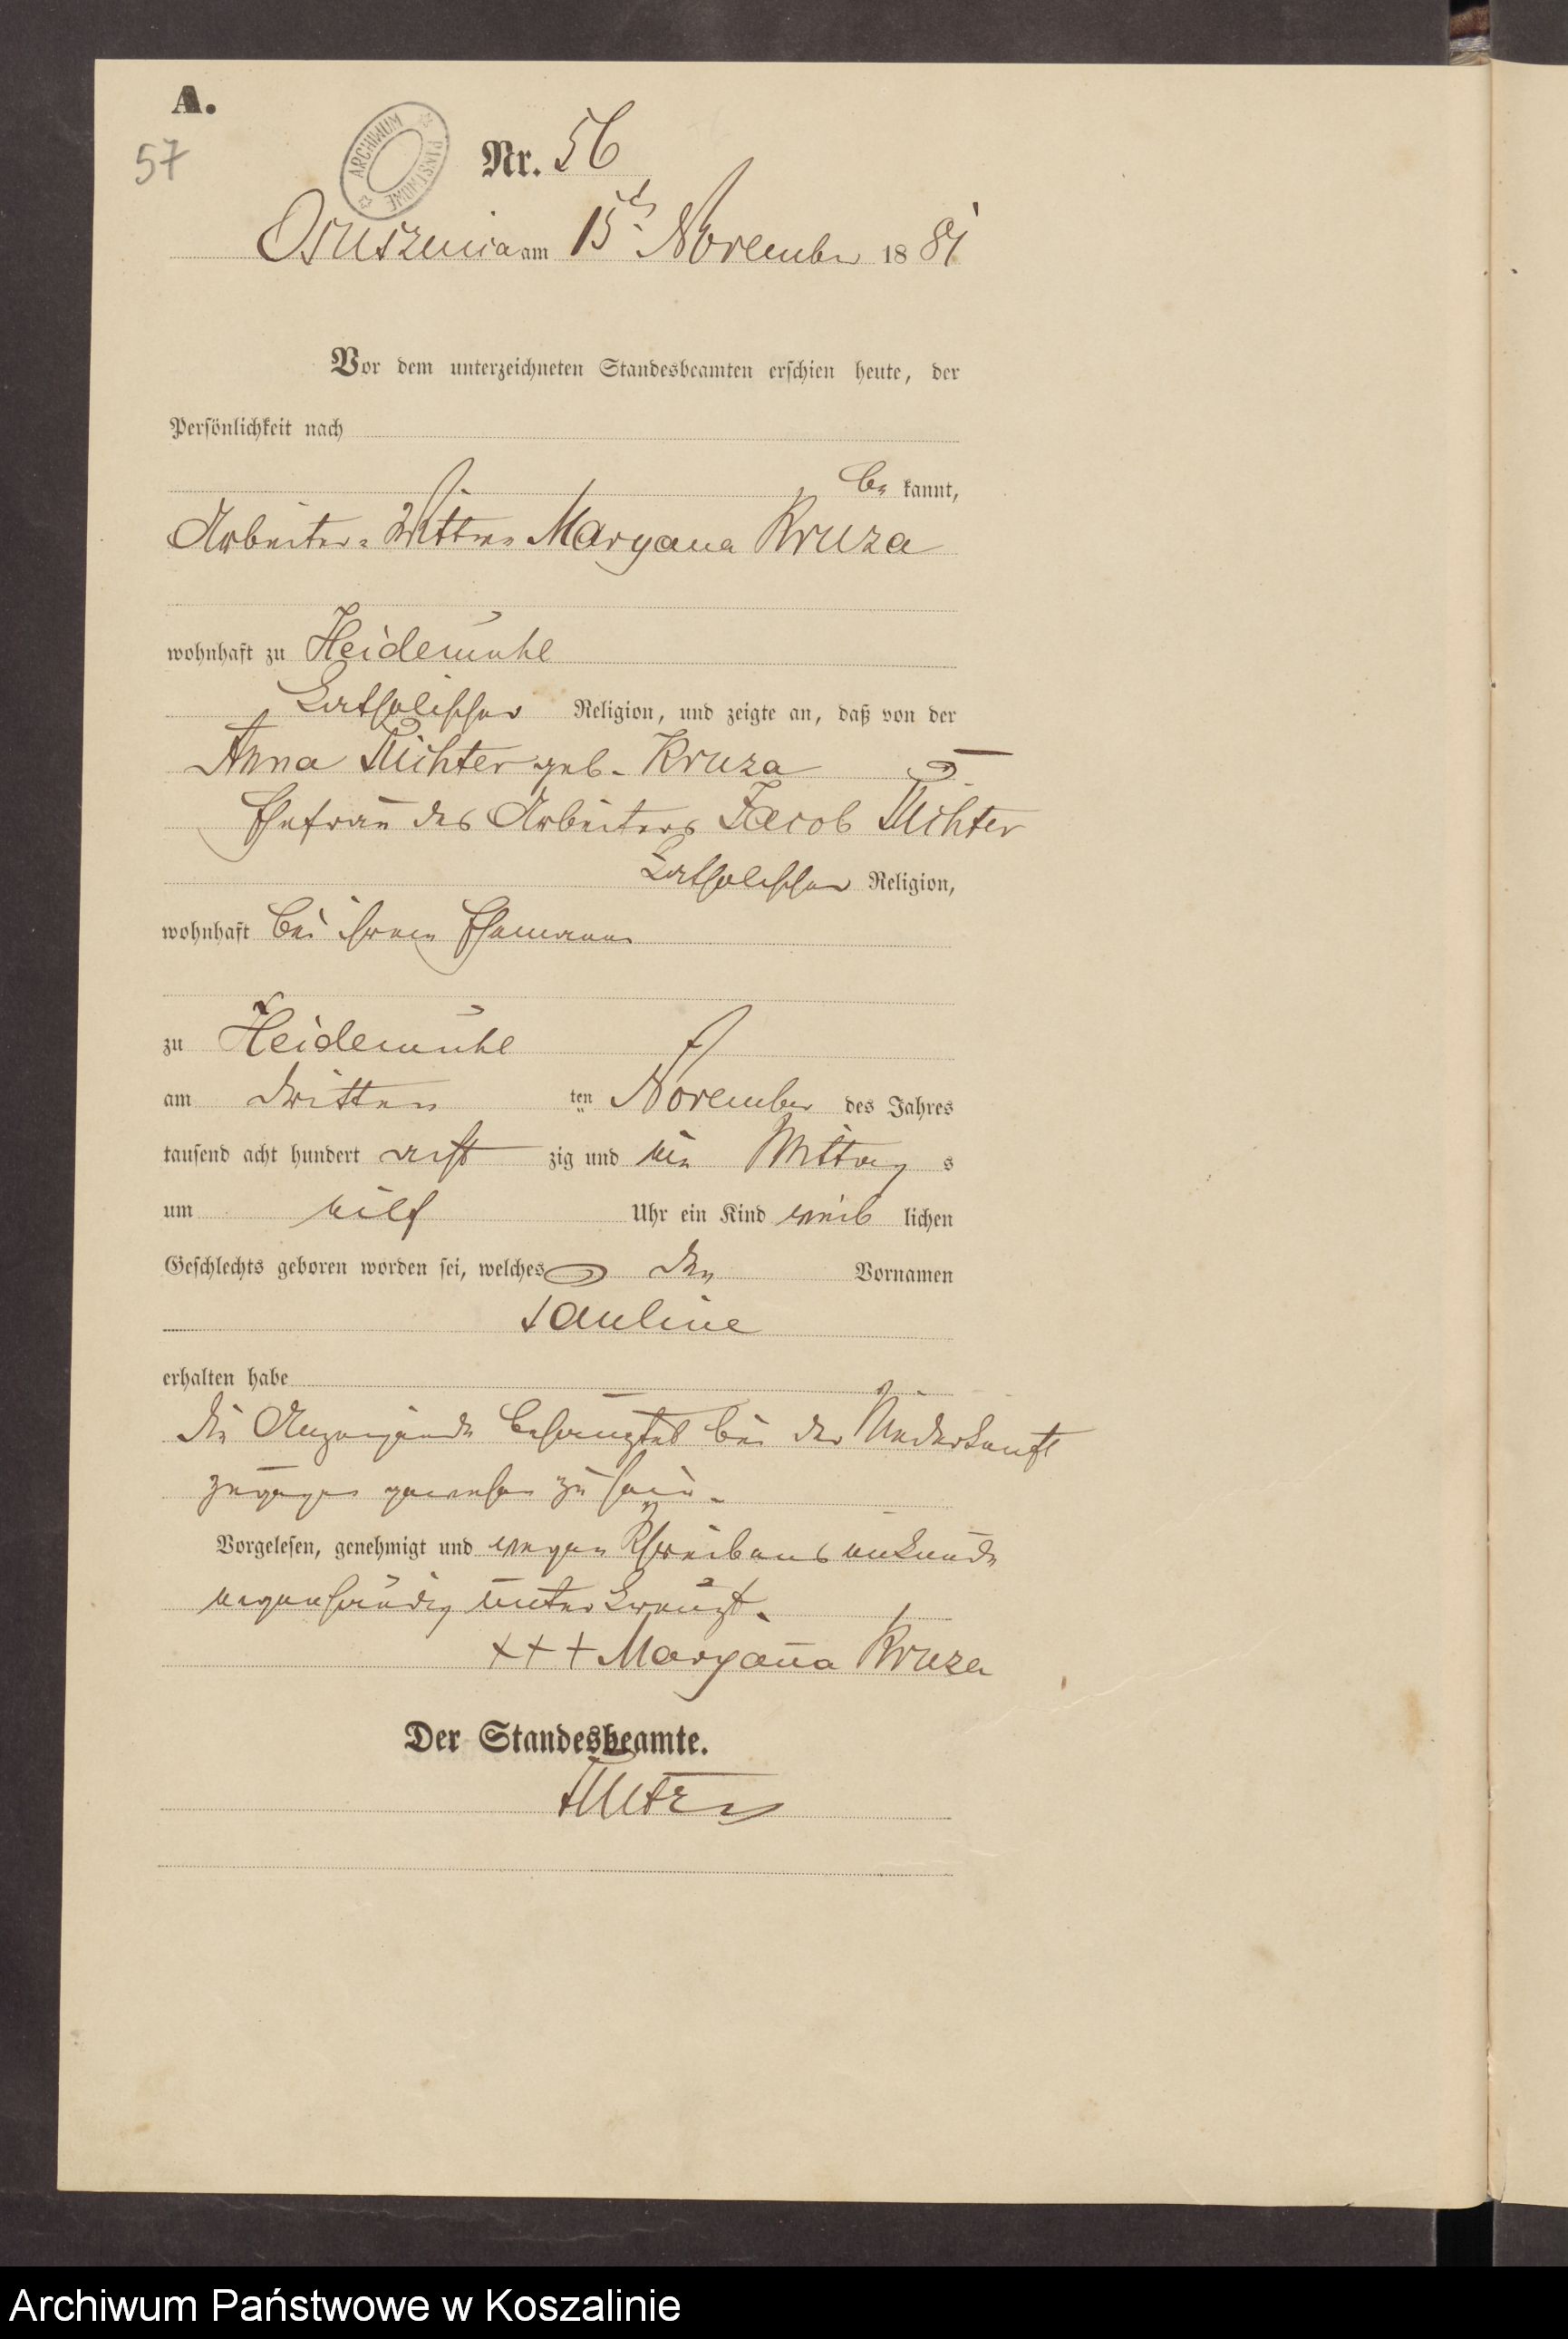 A.
57
ARCHIWUM PAŃSTWOWE
Nr. 56
Osuszniza am 15ten November 18 81
Vor dem unterzeichneten Standesbeamten erschien heute, der
Persönlichkeit nach
be kannt,
Arbeiter-Wittwe Maryana Kruza
wohnhaft zu Heidemühl
katholischer Religion, und zeigte an, daß von der
Anna Richter geb. Kruza
Ehefrau des Arbeiters Jacob Richter
katholischer Religion,
wohnhaft bei ihrem Ehemann
zu Heidemühl
am dritten ten November des Jahres
tausend acht hundert acht zig und ein Mittag s
um eilf Uhr ein Kind weib lichen
Geschlechts geboren worden sei, welches den Vornamen
Pauline
erhalten habe
die Anzeigende behauptet bei der Niederkunft
zugegen gewesen zu sein.
Vorgelesen, genehmigt und wegen Schreibens unkunde
eigenhändig unterkreuzt.
+++ Maryana Kruza
Der Standesbeamte.
Archiwum Państwowe w Koszalinie